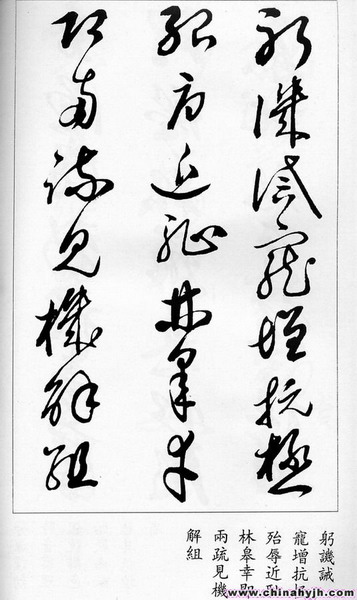 躬譏誡寵增抗極
殆辱近恥林皋幸
即兩疏見機解組
躬譏誡
寵增抗極
殆辱近恥
林皋幸即
兩疏見機
解組
www.chinahyjh.com